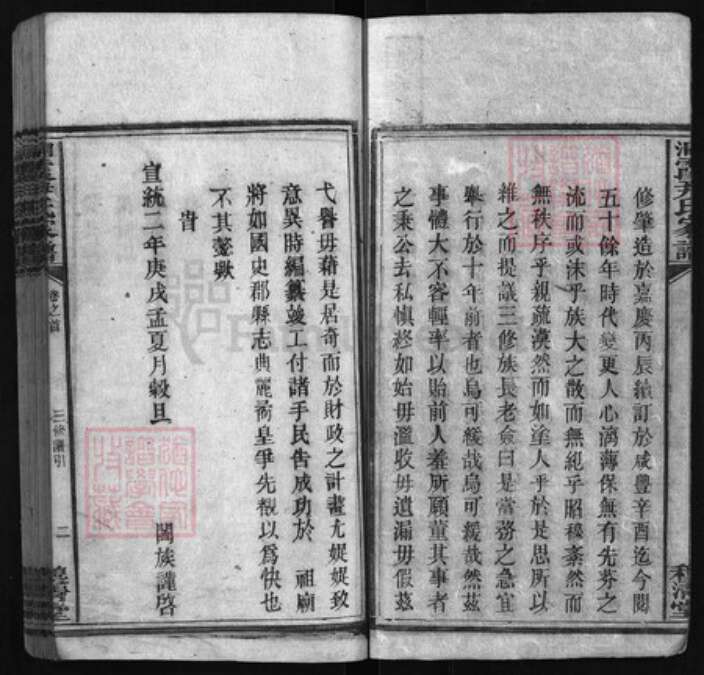 修肇造於嘉慶丙辰續訂於咸豐辛酉迄今閱
五十餘年時代變更人心漓薄保無有先芬之
流而或沫乎族大之散而無紀乎昭穆紊然而
無秩序乎親疏漠然而如塗人乎於是思所以
維之而提議三修族長老僉曰是當務之急宜
舉行於十年前者也烏可緩哉烏可緩哉然茲
事體大不容輕率以貽前人羞所願董其事者
之秉公去私慎終如始毋濫收毋遺漏毋假茲
弋譽毋藉是居奇而於財政之計畫尤娓娓致
意異時編纂竣工付諸手民告成功於 祖廟
將如國史郡縣志典麗裔皇爭先覩以為快也
不其懿歟
旹
宣統二年庚戌孟夏月榖旦
闔族謹啓
卷之首
三修譜引
二